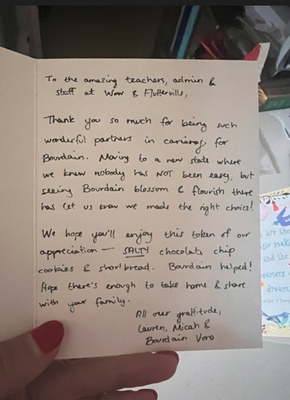 To the amazing teachers, admin &
staff at Wow & Flutterville,
Thank you so much for being such
wonderful partners in caring for
Bourdain. Moving to a new state where
we knew nobody has NOT been easy, but
seeing Bourdain blossom & flourish there
has let us know we made the right choice!
We hope you'll enjoy this token of our
appreciation — SALTY chocolate chip
cookies & shortbread. Bourdain helped!
Hope there's enough to take home & share
with your family.
All our gratitude,
Lauren, Micah &
Bourdain Vero
are the
and the
dreams